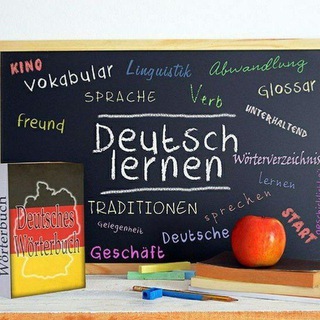 KINO
Vokabular
Linguistik
Abwandlung
SPRACHE
Verb
Glossar
UNTERHALTEND
freund
Deutsch
lernen
Wörterverzeichnis
lernen
TRADITIONEN
sprechen
START
Gelegenheit
Deutsche
Geschäft
Wörterbuch
Deutsches
Wörterbuch